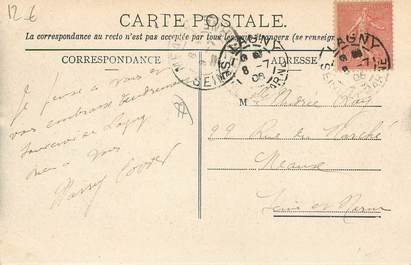 12 €
CARTE POSTALE.
La correspondance au recto n'est pas acceptée par tous les pays étrangers (se renseigner
CORRESPONDANCE
ADRESSE
LAGNY
8 -7
06
SEINE
MARNE
LAGNY
8 -7
06
SEINE
MARNE
Je pense à vous et
vous embrasse tendrement
Souvenir de Lagny
à vous
M
99 Rue du Marché
Meaux
Seine et Marne